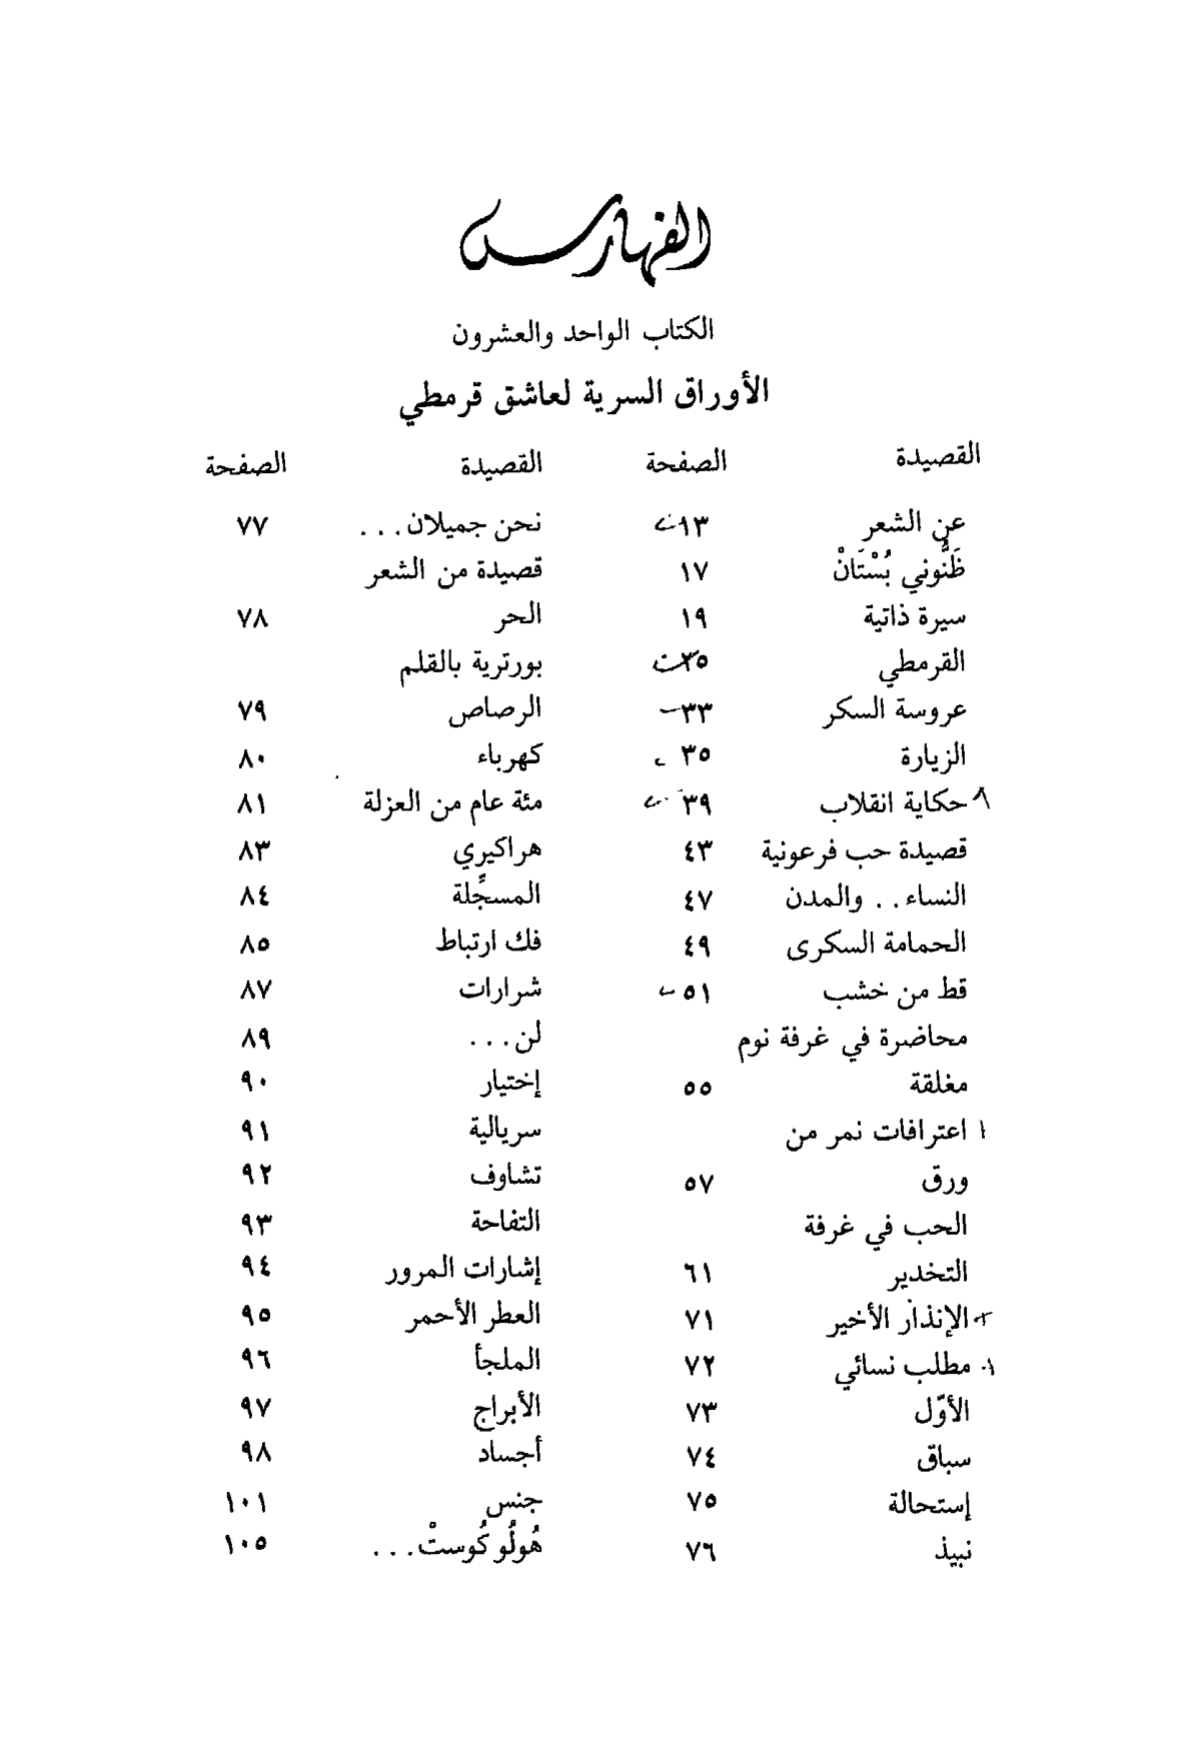 الفهارس
الكتاب الواحد والعشرون
الأوراق السرية لعاشق قرمطي
القصيدة الصفحة
عن الشعر ١٣
ظَنُّوني بُسْتَانْ ١٧
سيرة ذاتية ١٩
القرمطي ٢٥
عروسة السكر ٣٣
الزيارة ٣٥
حكاية انقلاب ٣٩
قصيدة حب فرعونية ٤٣
النساء.. والمدن ٤٧
الحمامة السكرى ٤٩
قط من خشب ٥١
محاضرة في غرفة نوم
مغلقة ٥٥
اعترافات نمر من
ورق ٥٧
الحب في غرفة
التخدير ٦١
الإنذار الأخير ٧١
مطلب نسائي ٧٢
الأوّل ٧٣
سباق ٧٤
إستحالة ٧٥
نبيذ ٧٦
القصيدة الصفحة
نحن جميلان... ٧٧
قصيدة من الشعر
الحر ٧٨
بورترية بالقلم
الرصاص ٧٩
كهرباء ٨٠
مئة عام من العزلة ٨١
هراكيري ٨٣
المسجِّلة ٨٤
فك ارتباط ٨٥
شرارات ٨٧
لن... ٨٩
إختيار ٩٠
سريالية ٩١
تشاوف ٩٢
التفاحة ٩٣
إشارات المرور ٩٤
العطر الأحمر ٩٥
الملجأ ٩٦
الأبراج ٩٧
أجساد ٩٨
جنس ١٠١
هُولُوكُوستْ... ١٠٥